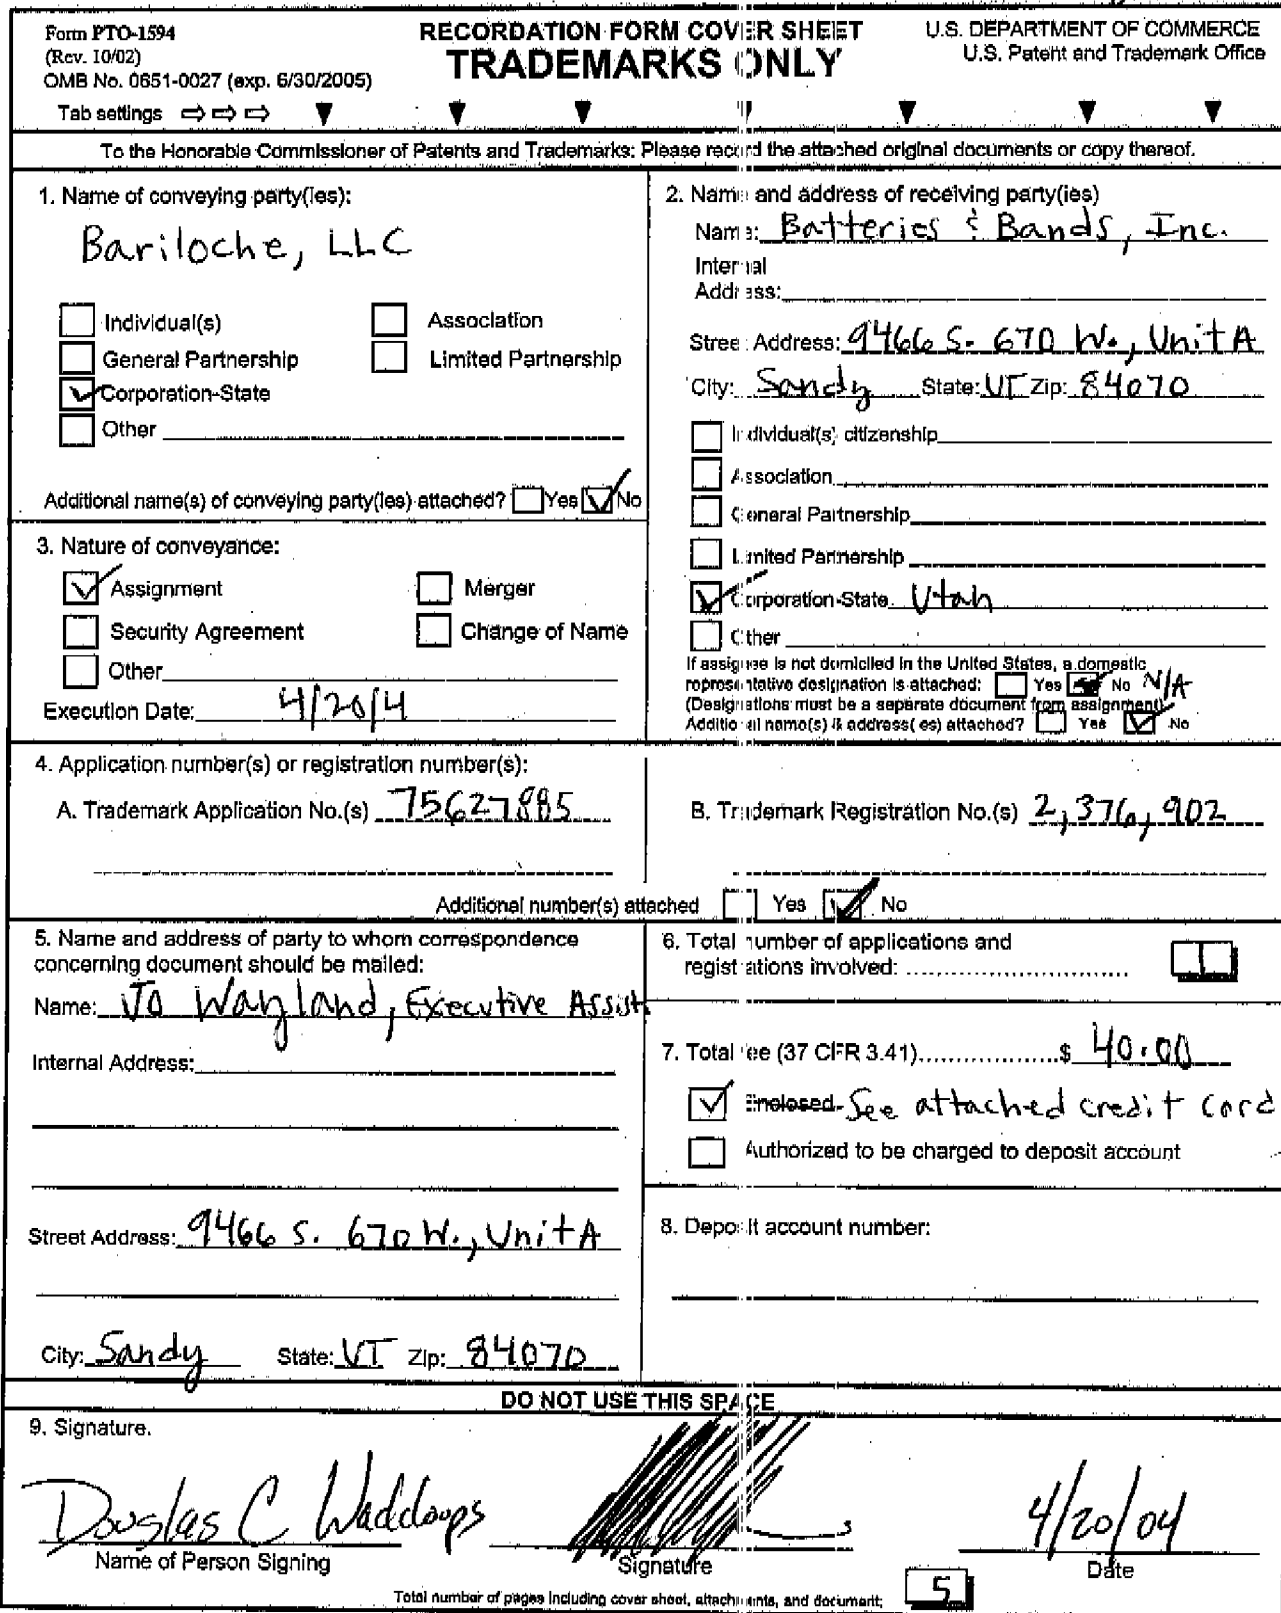 Form PTO-1594
(Rev. 10/02)
OMB No. 0651-0027 (exp. 6/30/2005)
RECORDATION FORM COVER SHEET
TRADEMARKS ONLY
U.S. DEPARTMENT OF COMMERCE
U.S. Patent and Trademark Office
Tab settings
To the Honorable Commissioner of Patents and Trademarks: Please record the attached original documents or copy thereof.
1. Name of conveying party(ies):
Bariloche, LLC
Individual(s)
Association
General Partnership
Limited Partnership
Corporation-State
Other
Additional name(s) of conveying party(ies) attached? Yes No
2. Name and address of receiving party(ies)
Name: Batteries & Bands, Inc.
Internal
Address:
Street Address: 9466 S. 670 W., Unit A
City: Sandy State: UT Zip: 84070
Individual(s) citizenship
Association
General Partnership
Limited Partnership
Corporation-State Utah
Other
If assignee is not domiciled in the United States, a domestic
representative designation is attached: Yes No N/A
(Designations must be a separate document from assignment)
Additional name(s) & address(es) attached? Yes No
3. Nature of conveyance:
Assignment
Merger
Security Agreement
Change of Name
Other
Execution Date: 4/20/4
4. Application number(s) or registration number(s):
A. Trademark Application No.(s) 75627885
B. Trademark Registration No.(s) 2,376,902
Additional number(s) attached Yes No
5. Name and address of party to whom correspondence
concerning document should be mailed:
Name: Jo Wayland, Executive Assist.
Internal Address:
Street Address: 9466 S. 670 W., Unit A
City: Sandy State: UT Zip: 84070
6. Total number of applications and
registrations involved: 1
7. Total fee (37 CFR 3.41) $ 40.00
Enclosed- See attached credit card
Authorized to be charged to deposit account
8. Deposit account number:
DO NOT USE THIS SPACE
9. Signature.
Douglas C Waddoups
4/20/04
Name of Person Signing
Signature
Date
Total number of pages including cover sheet, attachments, and document: 5